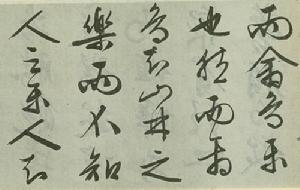 而禽鳥樂
也然而禽
鳥知山林之
樂而不知
人之樂人知